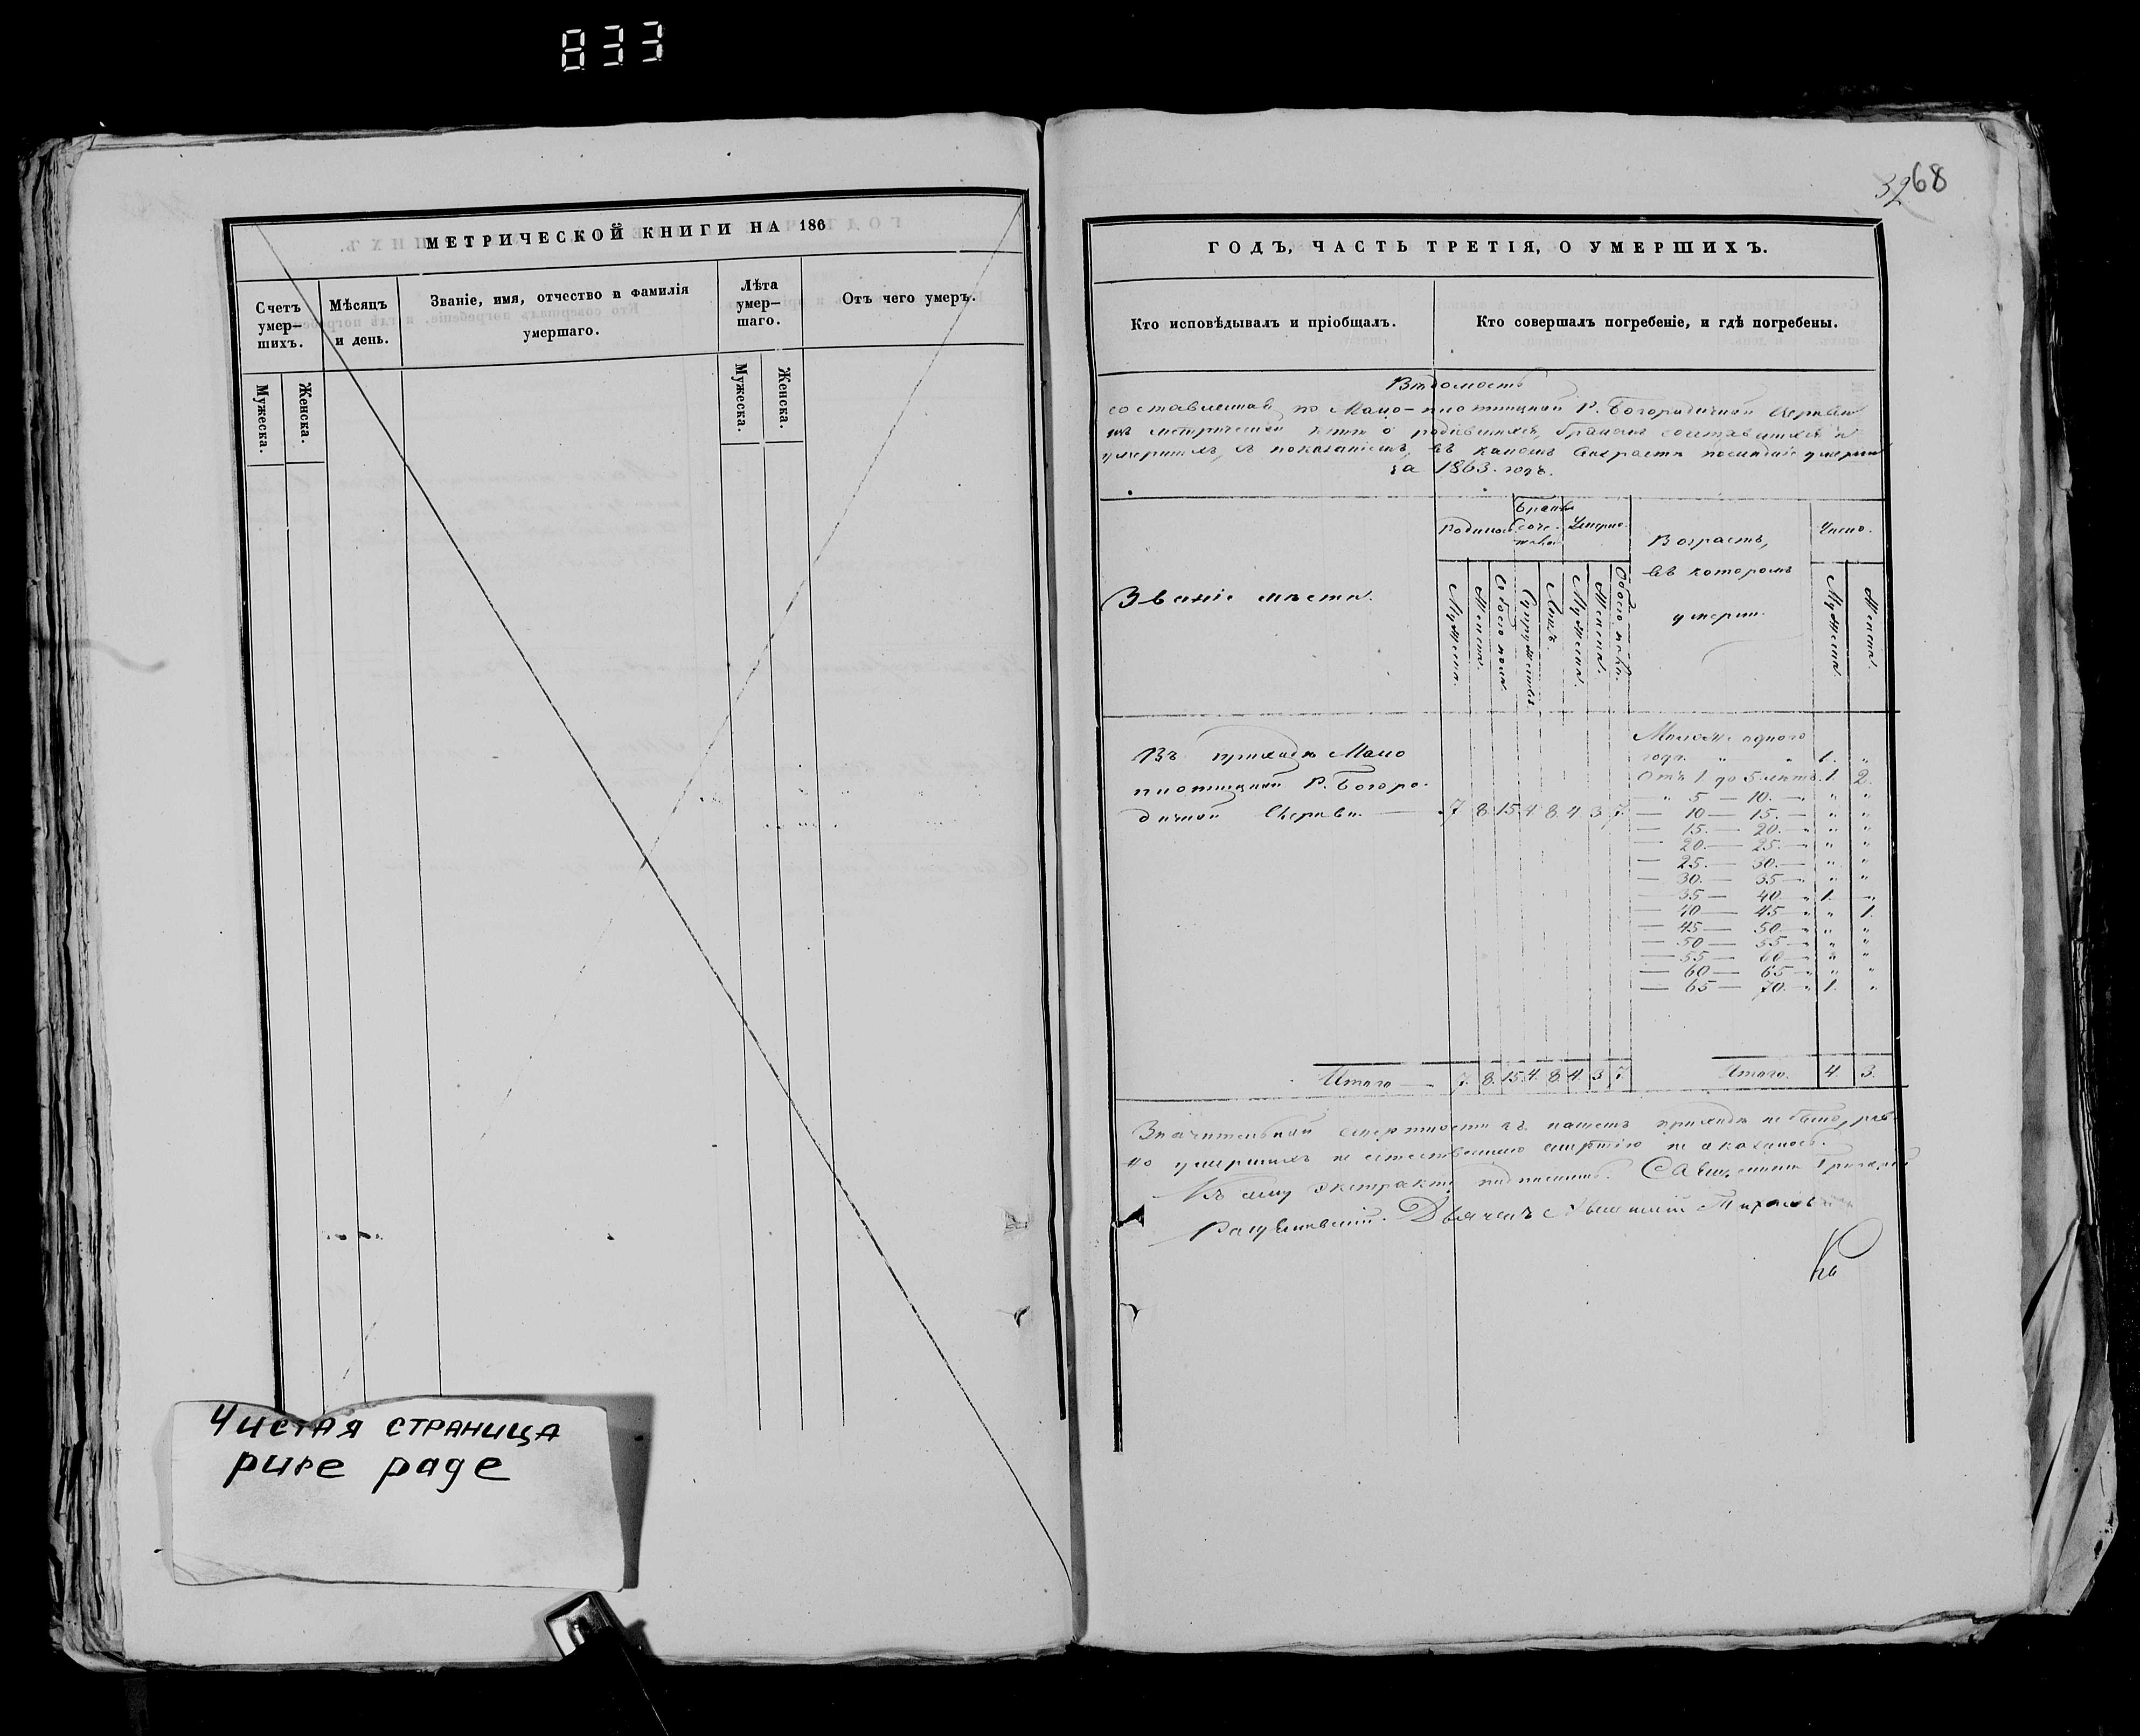 833
3268
МЕТРИЧЕСКОЙ КНИГИ НА 186
Счетъ умер— шихъ.
Мѣсяцъ и день.
Званіе, имя, отчество и фамилія умершаго.
Лѣта умер— шаго.
Отъ чего умеръ.
Мужеска.
Женска.
Мужеска.
Женска.
Чистая страница
pure page
ГОДЪ, ЧАСТЬ ТРЕТІЯ, О УМЕРШИХЪ.
Кто исповѣдывалъ и пріобщалъ.
Кто совершалъ погребеніе, и гдѣ погребены.
Вѣдомость
составленная по Мало-плотницкой Р. Богородичной Церкви
метрической о родившихся, бракомъ сочетавшихся и
умершихъ, съ показаніемъ, въ какомъ возрастѣ послѣдніе умерли
за 1863. годъ.
Званіе мѣста.
Родилось
Браковъ Соче-
Умерло.
Возрастъ,
въ которомъ
умерли.
Число.
Мужеска.
Женска.
Обоего пола.
Супружествъ.
Лицъ.
Мужеска.
Женска.
Обоего пола.
Мужеска.
Женска.
Въ приходѣ Мало
плотницкой Р. Богоро-
дичной Церкви. — 7 8 15 4 8 4 3 7
Моложе одного
года. " " 1. "
Отъ 1 до 5 лѣтъ. 1. 2.
— " 5 — 10. — " " "
— 10 — 15. — " "
— 15. — 20. — " " "
— 20. — 25. — " " "
— 25. — 30. — " "
— 30. — 35 — " " "
— 35 — 40. — " 1. "
— 40 — 45 — " " 1.
— 45 — 50. — " " "
— 50 — 55 — " " "
— 55 — 60 — " " "
— 60 — 65 — " " "
— 65 — 70. — " 1. "
Итого — 7. 8. 15 4. 8 4. 3. 7.
Итого. 4. 3.
Значительной смертности въ нашемъ приходѣ не было, рав-
но умершихъ не естественною смертію не оказалось.
Къ сему экстракту подписались. Священникъ Григорій
Дьячекъ